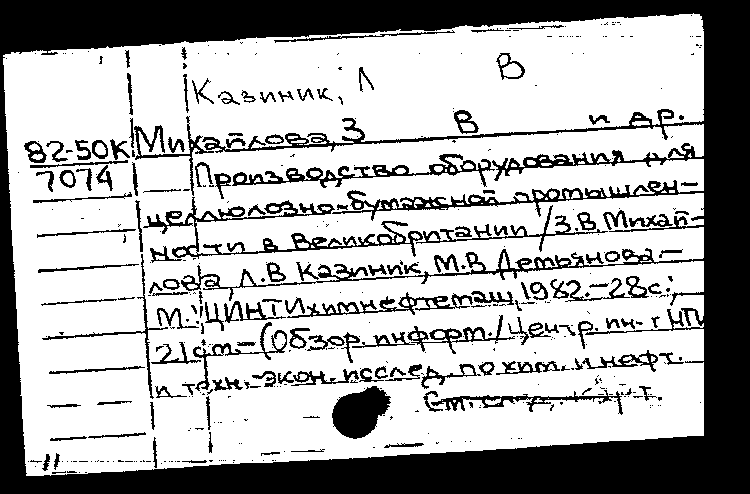 Казиник, Л В
82-50К Михайлова, З В и др.
7074 Производство оборудования для
целлюлозно-бумажной промышлен-
ности в Великобритании / З.В. Михай-
лова, Л.В Казиник, М.В Демьянова.-
М.: ЦИНТИхимнефтемаш, 1982.-28с.;
21см.-(Обзор. информ./Центр. ин-т НТИ
и техн.-экон. исслед. по хим. и нефт.
См. след. карт.
11